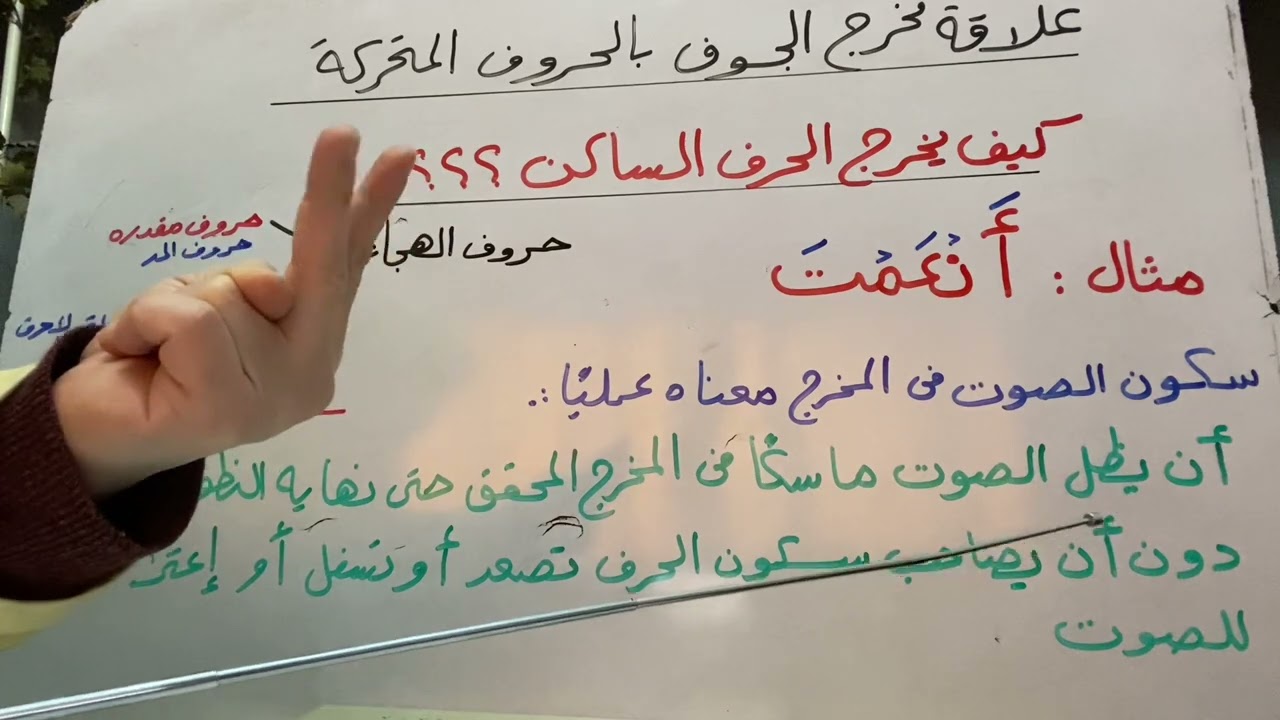 علاقة مخرج الجوف بالحروف المتحركة
كيف يخرج الحرف الساكن ؟؟؟
حروف
حروف مقدره
حروف المد
مثال : أَنْعَمْتَ
سكون الصوت فى المخرج معناه عمليًا :.
أن يظل الصوت ماسكًا فى المخرج المحقق حتى نهايه
دون أن يصاحب سكون الحرف تَصعد أو تَسفل أو
للصوت